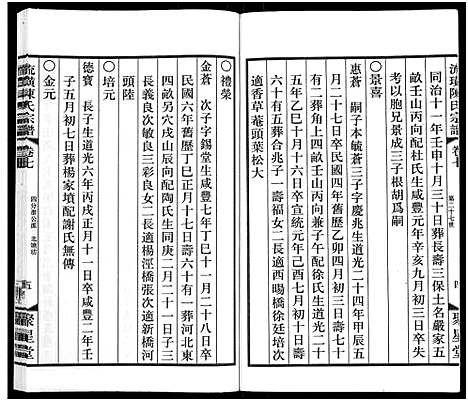 流璜陳氏宗譜 卷七 第二十七世 四 聚星堂
同治十一年壬申十月三十日葬長壽三保土名嚴家五
畝王山丙向配杜氏生咸豐元年辛亥九月初三日卒失
考以胞兄景成三子根胡爲嗣
○景喜
惠蒼 嗣子本毓斋三子字慶生道光二十四年甲辰五
月二十七日卒民國四年舊歷乙卯四月初三日壽七十
有二葬角上四畝壬山丙向兼子午配徐氏生道光二十
五年乙巳十月十六日卒宣統元年己酉七月初十日壽
六十有五葬合兆子一壽福女二長適西暘橋徐廷培次
適香草菴頭葉松大
○禮榮
金蒼 次子字錫堂生咸豐七年丁巳十一月二十八日卒
民國六年舊歷丁巳正月十七日壽六十有一葬河北東
四畝另六戌山辰向配陶氏生同庚二月二十一日子三
長義良次敏良三彩良女二長適楊涇橋張次適新橋河
頭陸
○培元
德寶 長子生道光六年丙戌正月十一日卒咸豐二年壬
子五月初七日葬楊家墳配謝氏無傳
○金元
流璜陳氏宗譜 卷七 五 聚星堂